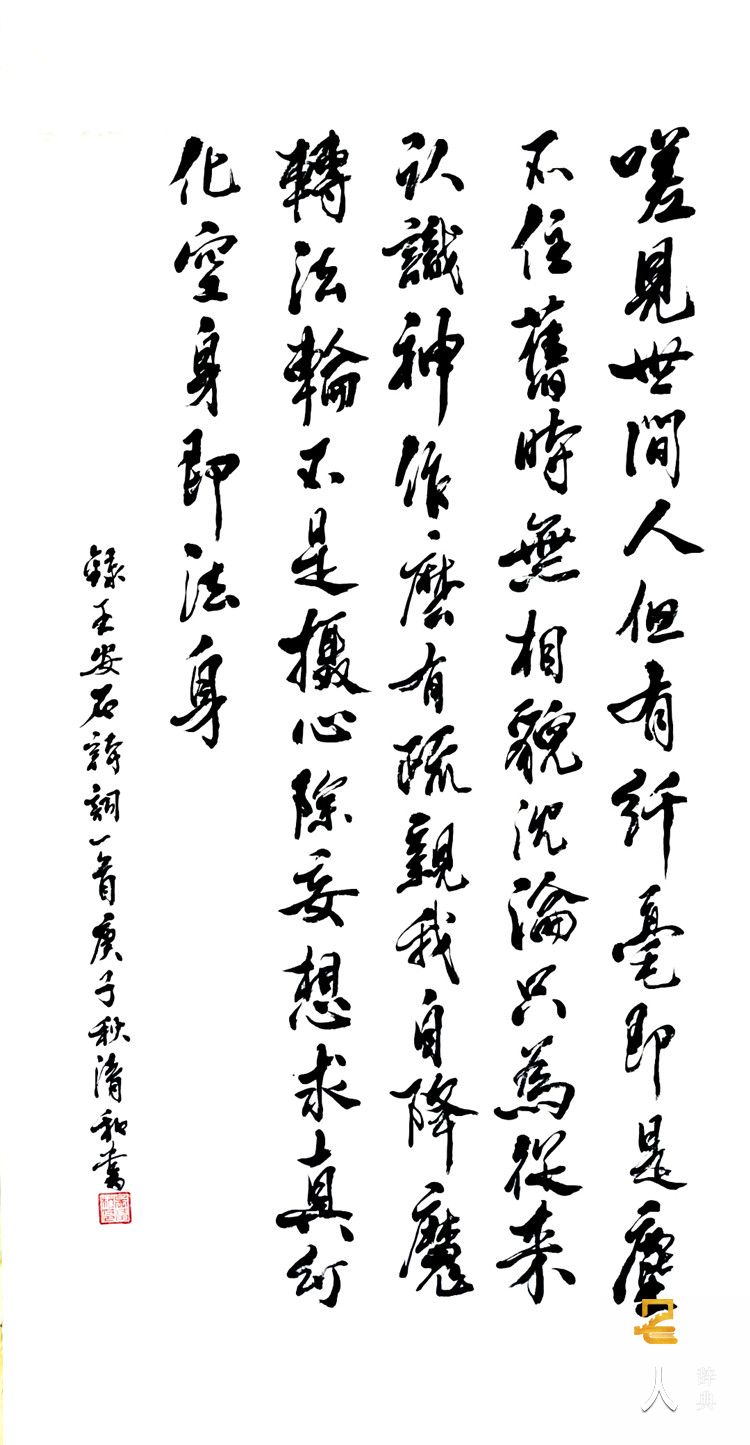 嗟見世間人但有纤毫即是塵
不住舊時無相貌沈淪只為從来
认識神作麼有疏親我自降魔
轉法輪不是摄心除妄想求真幻
化空身即法身
錄王安石詩詞一首庚子秋清和書
名人辞典